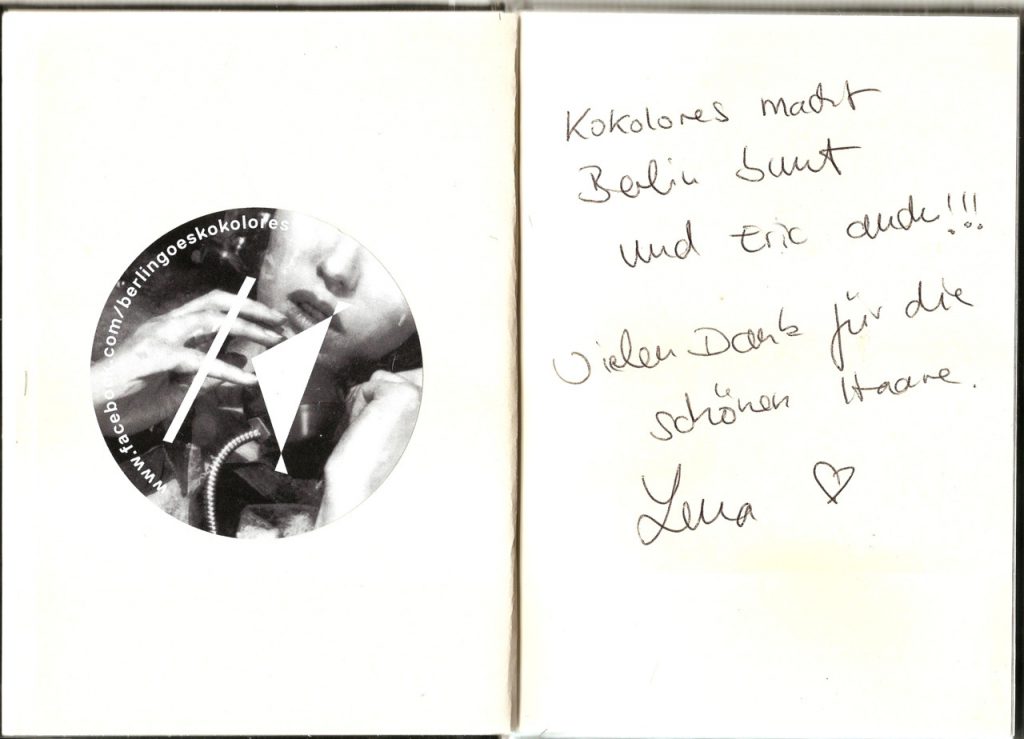 www.facebook.com/berlingoeskokolores
Kokolores macht
Berlin bunt
und Eric auch!!!
Vielen Dank für die
schönen Haare.
Lena ♡